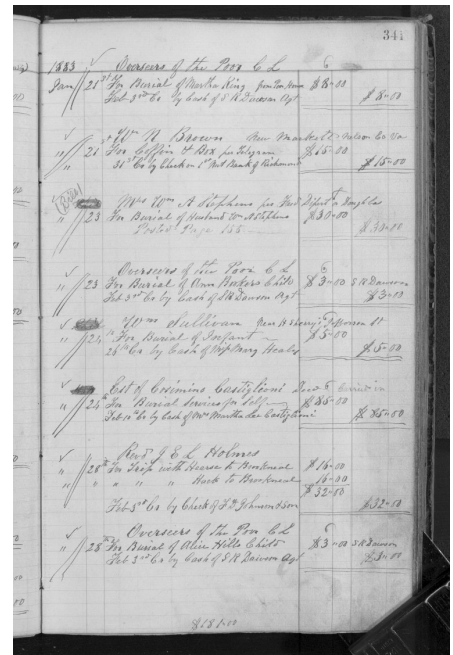 341
1883 Overseers of the Poor C L
Jany 21st For Burial of Martha King from Poor House $8-00
Feb 3rd Cr by Cash of S R Dawson Agt $8-00
Wm R Brown New Market Nelson Co Va
" 21 For Coffin & Box per Telegram $15-00
31st Cr by Check on 1st Nat Bank of Richmond $15-00
Mrs Wm A Stephens
" 23 For Burial of Husband Wm A Stephens $30-00
Posted Page 158 $30-00
Overseers of the Poor C L
" 23 For Burial of Ann Child $3-00 S R Dawson
Feb 3rd Cr by Cash of S R Dawson Agt $3-00
Wm Sullivan Jefferson St
" 24th For Burial of Infant $5-00
26th Cr by Cash of $5-00
Est of Cosimino Castiglioni Decd
" 24th For Burial Services for Self $85-00
Feb Cr by Cash of Mrs Martha Lee Castiglioni $85-00
Revd J E L Holmes
" 28th For Trip with Hearse to Brookneal $16-00
" " " " Hack to Brookneal 16-00
$32-00
Feb Cr by Check of $32-00
Overseers of the Poor C L
" 28th For Burial of Alice Hills Child $3-00 S R Dawson
Feb 3rd Cr by Cash of S R Dawson Agt $3-00
$181-00